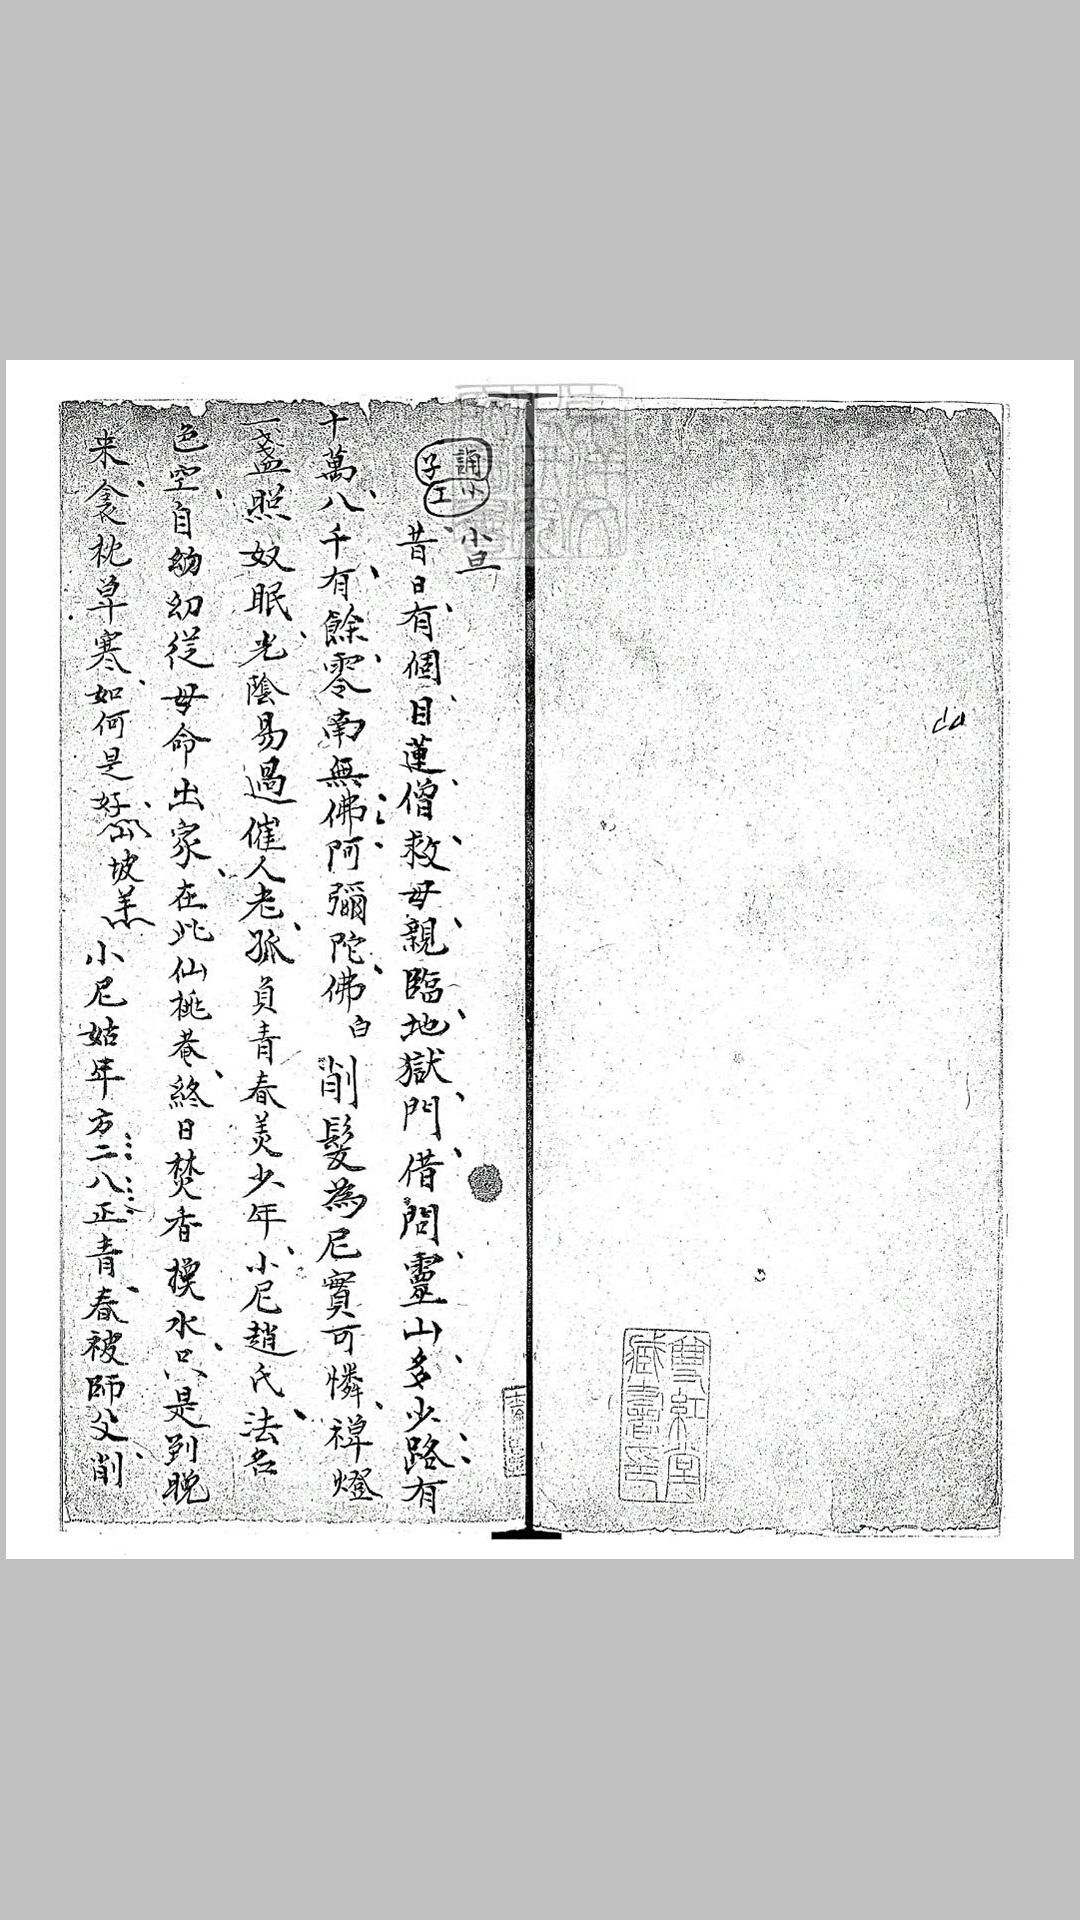 誦子
小工
小旦
昔日有個目蓮僧救母親臨地獄門借問靈山多少路有
十萬八千有餘零南無佛阿彌陀佛白 削髮為尼實可憐禅燈
一盞照奴眠光陰易過催人老孤負青春美少年小尼趙氏法名
色空自幼幻從母命出家在此仙桃菴終日焚香換水只是到晚
来衾枕单寒如何是好
山坡羊
小尼姑年方二八正青春被師父削
雙紅堂
藏書印